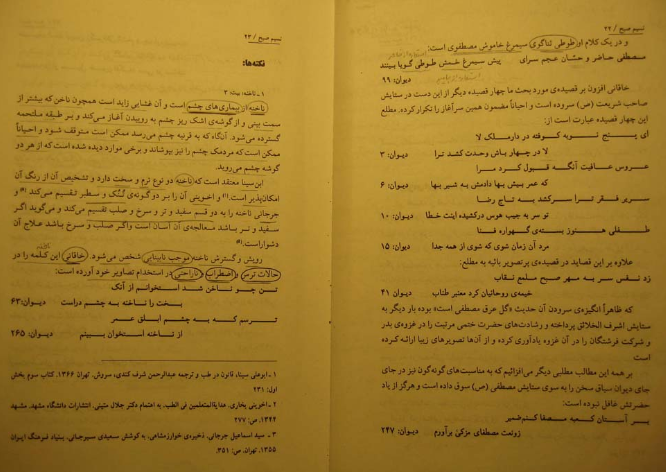 نسیم صبح / ۲۲
و در یک کلام او طوطی ثناگوی سیمرغ خاموش مصطفوی است:
مصطفی حاضر و حسّان عجم سرای پیش سیمرغ خمش طوطی گویا بینند
دیوان: ۹۹
خاقانی افزون بر قصیده‌ی مورد بحث ما چهار قصیده دیگر از این دست در ستایش
صاحب شریعت (ص) سروده است و احیاناً مضمون همین سرآغاز را تکرار کرده. مطلع
این چهار قصیده عبارت است از:
ای پنج نوبه کوفته در دارملک لا
لا در چهار باش وحدت کشد ترا دیوان: ۳
عروس عافیت آنگه قبول کرد مرا
که عمر بیش بها دادمش به شیر بها دیوان: ۶
سریر فقر ترا سرکشد به تاج رضا
تو سر به جیب هوس درکشیده اینت خطا دیوان: ۱۰
طفلی هنوز بسته‌ی گهواره فنا
مرد آن زمان شوی که شوی از همه جدا دیوان: ۱۵
علاوه بر این قصاید در قصیده‌ی پرتصویر بائیه به مطلع:
زد نفس سر به مهر صبح ملمع نقاب
خیمه‌ی روحانیان کرد معنبر طناب دیوان ۴۱
که ظاهراً انگیزه‌ی سرودن آن حدیث «گل عرق مصطفی است» بوده بار دیگر به
ستایش اشرف الخلائق پرداخته و رشادت‌های حضرت ختمی مرتبت را در غزوه‌ی بدر
و شرکت فرشتگان را در آن غزوه یادآوری کرده و از آن‌ها تصویرهای زیبا ارائه کرده
است
بر همه این مطالب مطلبی دیگر می‌افزائیم که به مناسبت‌های گونه‌گون نیز در جای
جای دیوان سیاق سخن را به سوی ستایش مصطفی (ص) سوق داده است و هرگز از یاد
حضرتش غافل نبوده است:
بر آستان کعبه مصفا کنم ضمیر
زو نعت مصطفای مزکّیٰ برآورم دیوان: ۲۴۷
نسیم صبح / ۲۳
نکته‌ها:
۱ ـ ناخنه: بیت ۲
ناخنه از بیماری‌های چشم است و آن غشایی زاید است همچون ناخن که بیشتر از
سمت بینی و از گوشه‌ی اشک ریز چشم به روییدن آغاز می‌کند و بر طبقه ملتحمه
گسترده می‌شود. آنگاه که به قرنیه چشم می‌رسد ممکن است متوقف شود و احیاناً
ممکن است که مردمک چشم را نیز بپوشاند و برخی موارد دیده شده است که از هر دو
گوشه چشم می‌روید.
ابن سینا معتقد است که ناخنه دو نوع نرم و سخت دارد و تشخیص آن از رنگ آن
امکان‌پذیر است.(۱) و اخوینی آن را بر دو گونه‌ی تُنُک و سطبر تقسیم می‌کند (۲) و
جرجانی ناخنه را به دو قسم سفید و تر و سرخ و صلب تقسیم می‌کند و می‌گوید اگر
سفید و نرم باشد معالجه‌ی آن آسان است و اگر صلب و سرخ باشد علاج آن
دشوار است.(۳)
رویش و گسترش ناخنه موجب نابینایی شخص می‌شود. خاقانی این کلمه را در
حالات ترس و اضطراب و ناراحتی در استخدام تصاویر خود آورده است:
تن چو ناخن شد استخوانم از آنک
بخت را ناخنه به چشم دراست دیوان: ۶۳
ترسم که به چشم ابلق عمر
از ناخنه استخوان ببینم دیوان: ۲۶۵
۱ ـ ابوعلی سینا، قانون در طب و ترجمه عبدالرحمن شرف کندی، سروش، تهران ۱۳۶۶، کتاب سوم بخش
اول: ۲۳۱
۲ ـ اخوینی بخاری، هدایةالمتعلمین فی الطب، به اهتمام دکتر جلال متینی، انتشارات دانشگاه مشهد، مشهد
۱۳۴۴، ص: ۲۷۷
۳ ـ سید اسماعیل جرجانی، ذخیره‌ی خوارزمشاهی، به کوشش سعیدی سیرجانی، بنیاد فرهنگ ایران
۱۳۵۵، تهران، ص: ۳۵۱.